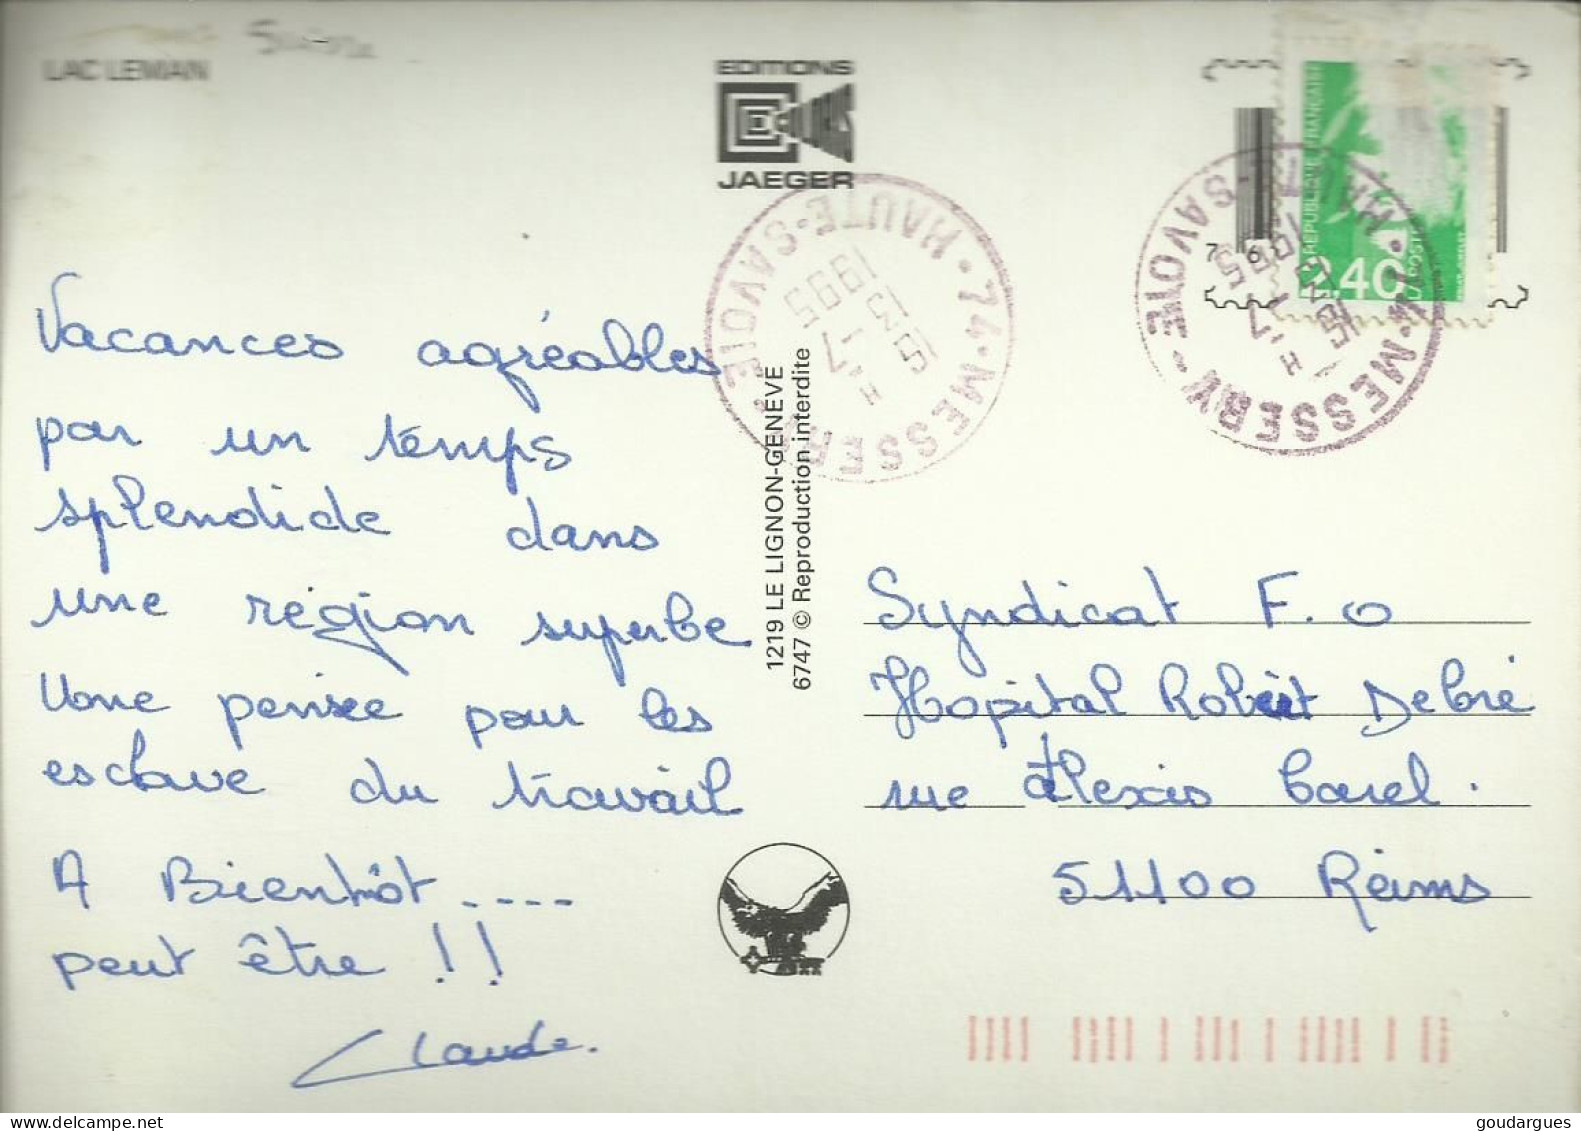 LAC LEMAN
Suisse
EDITIONS
JAEGER
Vacances agréables
par un temps
splendide dans
une région superbe
Une pensée pour les
esclave du travail
A Bientôt ....
peut être !!
Claude.
1219 LE LIGNON-GENEVE
6747 © Reproduction interdite
74 · MESSERY · HAUTE-SAVOIE
15 H
-7
1995
REPUBLIQUE FRANÇAISE
2,40
LA POSTE
74 · MESSERY - HAUTE-SAVOIE
-7
1995
Syndicat F. O
Hopital Robert Debré
rue Alexis Carel.
51100 Reims
goudargues